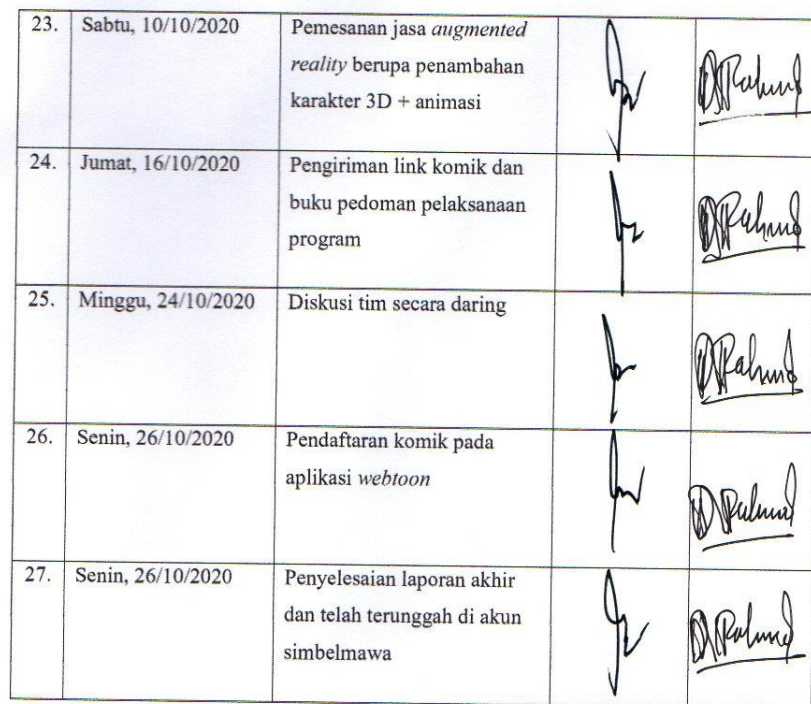 23. Sabtu, 10/10/2020 Pemesanan jasa augmented
reality berupa penambahan
karakter 3D + animasi
24. Jumat, 16/10/2020 Pengiriman link komik dan
buku pedoman pelaksanaan
program
25. Minggu, 24/10/2020 Diskusi tim secara daring
26. Senin, 26/10/2020 Pendaftaran komik pada
aplikasi webtoon
27. Senin, 26/10/2020 Penyelesaian laporan akhir
dan telah terunggah di akun
simbelmawa